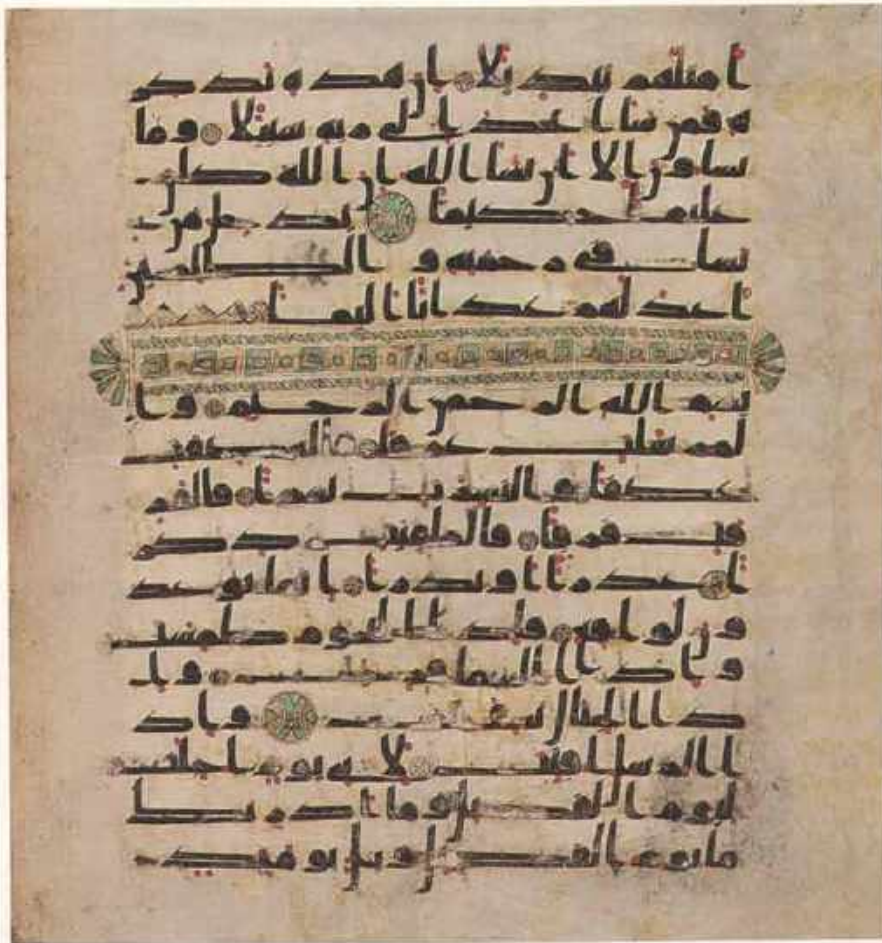 امثلهم تبديلا ان هذه تذكر
ه فمن شا اتخذ الى ربه سبيلا وما
تشاون الا ان يشا الله ان الله كان
عليما حكيما يدخل من
يشا في رحمته و الظلمين
اعد لهم عذابا اليما
بسم الله الرحمن الرحيم وا
لمرسلت عرفا فالعصفت
عصفا والنشرت نشرا فالفر
قت فرقا فالملقيت ذكر
ا عذرا او نذرا انما توعد
ون لوقع فاذا النجوم طمست
واذا السما فرجت واذ
ا الجبال نسفت واذ
ا الرسل اقتت لاي يوم اجلت
ليوم الفصل وما ادريك
ما يوم الفصل ويل يومئذ